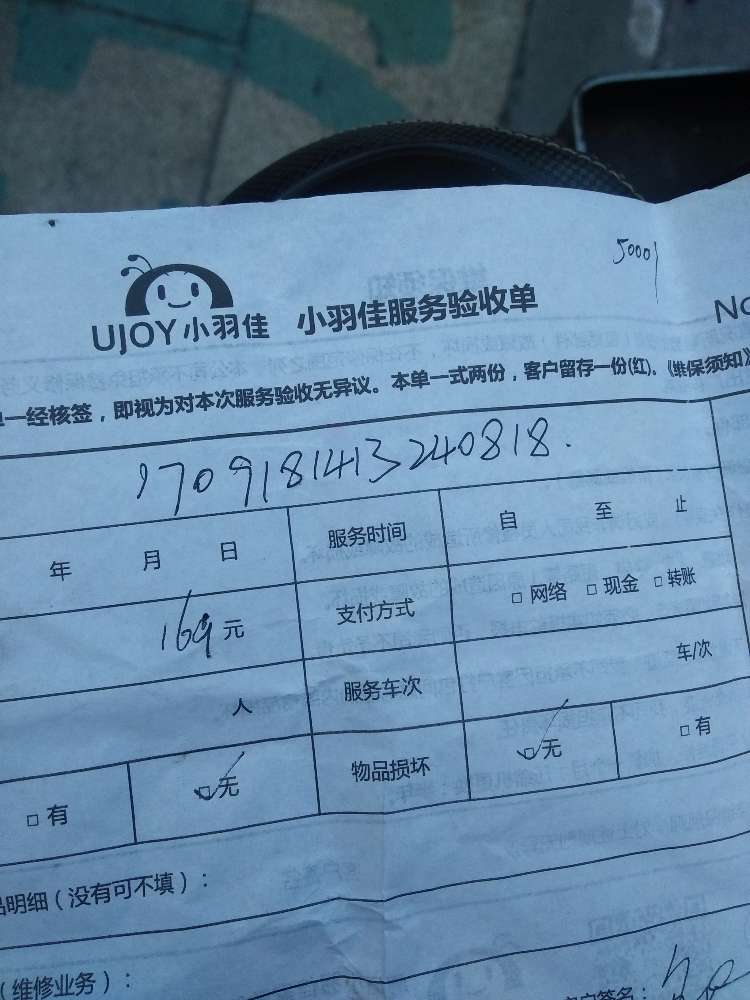 50001
UJOY小羽佳 小羽佳服务验收单 No
一经核签，即视为对本次服务验收无异议。本单一式两份，客户留存一份(红)。《维保须知》
1709181413240818.
年 月 日 服务时间 自 至 止
169元 支付方式 □网络 □现金 □转账
人 服务车次 车/次
□有 □无 物品损坏 □无 □有
品明细（没有可不填）：
（维修业务）：
客户签名：